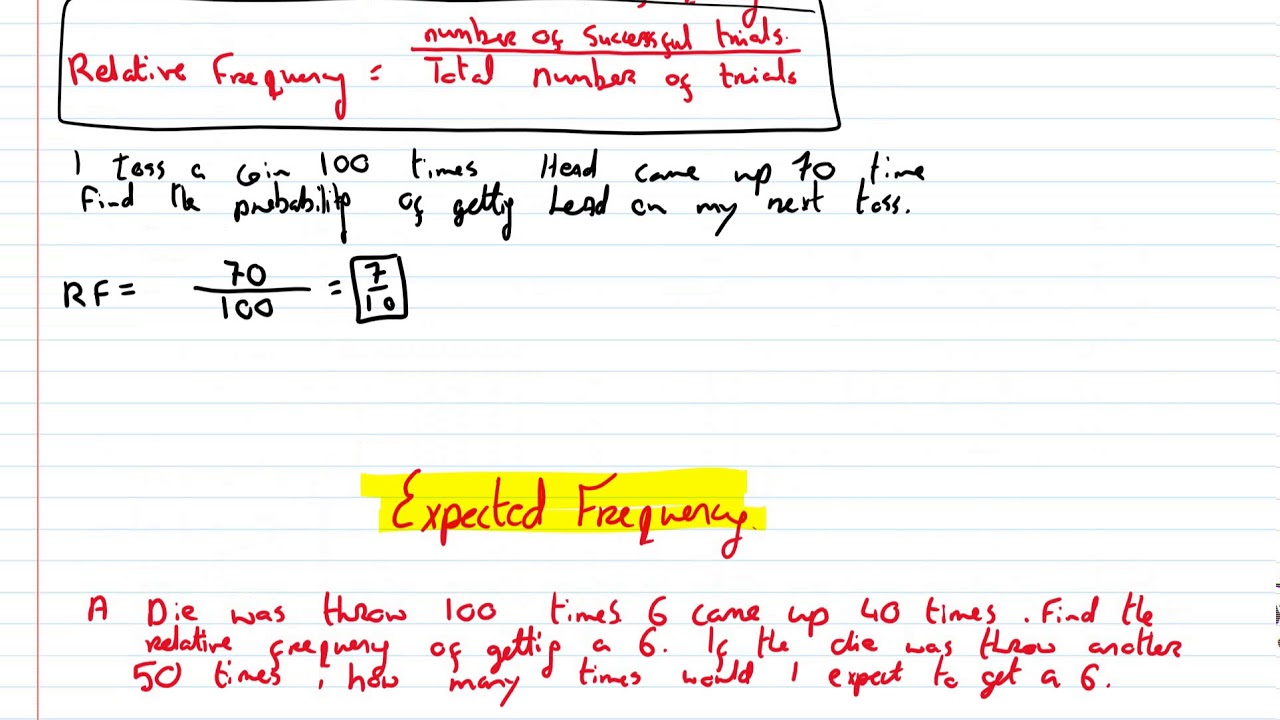 number of Successful trials.
Relative Frequency = Total number of trials
I toss a coin 100 times Head came up 70 time
Find the probability of gettig head on my next toss.
RF = 70 / 100 = 7 / 10
Expected Frequency.
A Die was throw 100 times 6 came up 40 times. Find the
relative frequency of gettig a 6. If the die was throw another
50 times, how many times would I expect to get a 6.